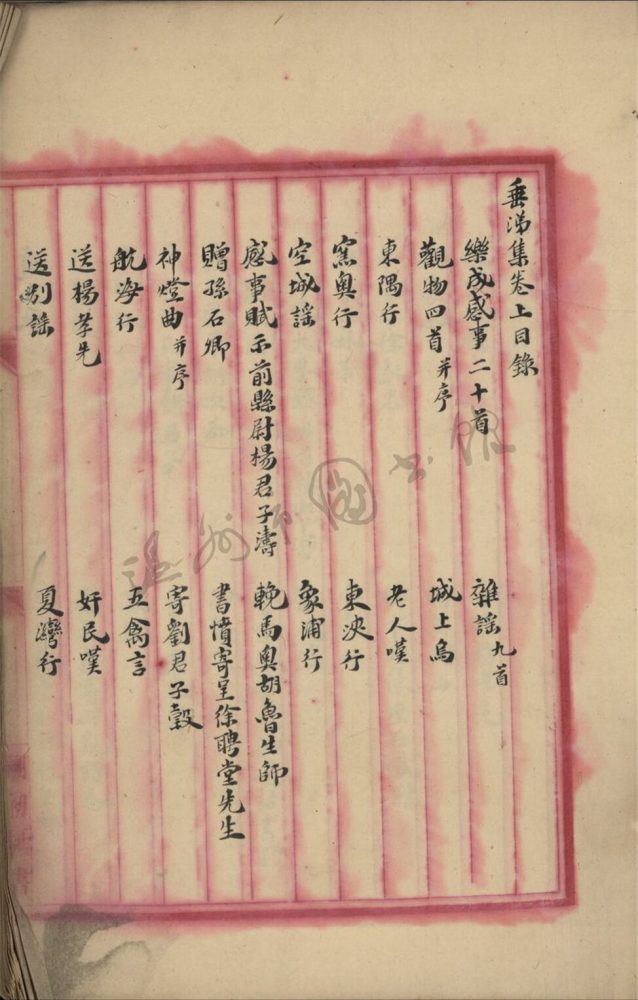 垂涕集卷上目錄
樂成感事二十首 雜謠九首
觀物四首并序 城上烏
東隅行 老人嘆
窯奧行 東浹行
空城謠 象浦行
感事賦示前縣尉楊君子濤 輓馬奧胡魯生師
贈孫石卿 書憤寄呈徐聘堂先生
神燈曲并序 寄劉君子穀
航海行 五禽言
送楊孝先 奸民嘆
送別謠 夏灣行
溫州市圖書館